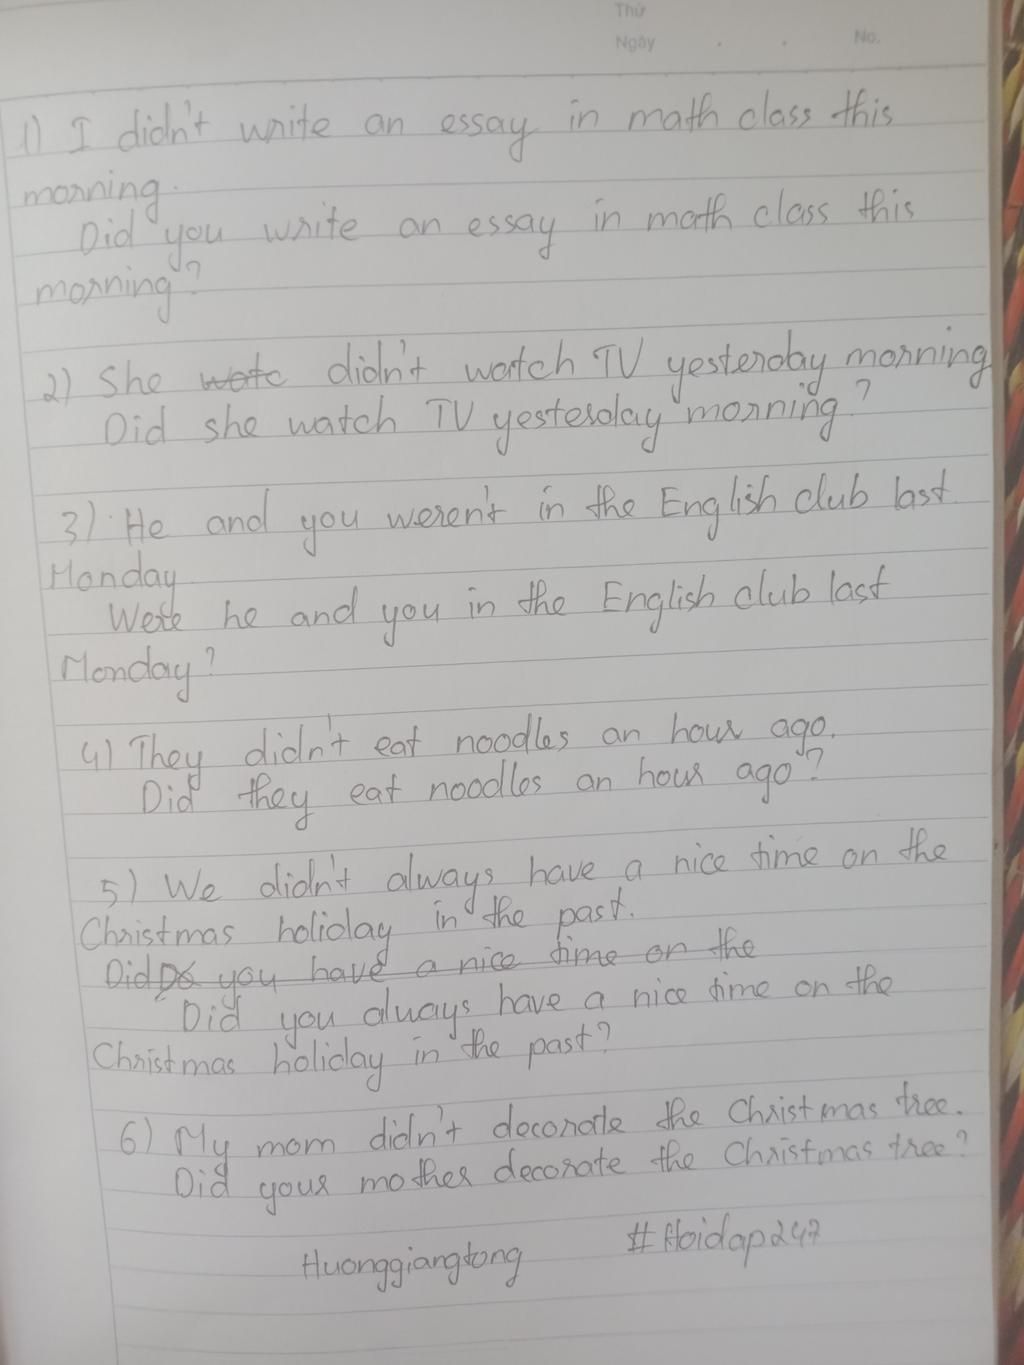 Thứ
Ngày . . No.
1) I didn't write an essay in math class this
morning.
Did you write an essay in math class this
morning?
2) She watc didn't watch TV yesterday morning
Did she watch TV yesterday morning?
3) He and you weren't in the English club last
Monday
Were he and you in the English club last
Monday?
4) They didn't eat noodles an hour ago.
Did they eat noodles an hour ago?
5) We didn't always have a nice time on the
Christmas holiday in the past.
Did Do you have a nice time on the
Did you always have a nice time on the
Christmas holiday in the past?
6) My mom didn't decorate the Christmas tree.
Did your mother decorate the Christmas tree?
Huonggiangtong #Hoidap247